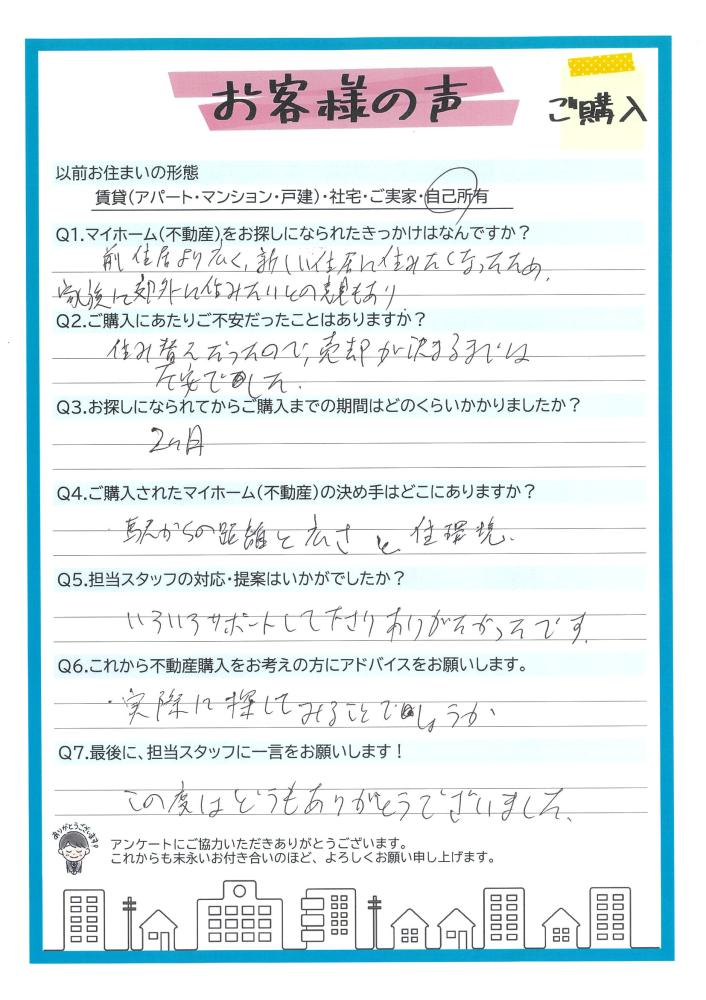 お客様の声
ご購入
以前お住まいの形態
賃貸(アパート・マンション・戸建)・社宅・ご実家・自己所有
Q1.マイホーム(不動産)をお探しになられたきっかけはなんですか?
前住居より広く、新しい住居に住みたくなったため、
家族に郊外に住みたいとの意見もあり
Q2.ご購入にあたりご不安だったことはありますか?
住み替えだったので、売却が決まるまでは
不安でした。
Q3.お探しになられてからご購入までの期間はどのくらいかかりましたか?
2ヶ月
Q4.ご購入されたマイホーム(不動産)の決め手はどこにありますか?
・駅からの距離と広さと住環境、
Q5.担当スタッフの対応・提案はいかがでしたか?
いろいろサポートして下さりありがたかったです。
Q6.これから不動産購入をお考えの方にアドバイスをお願いします。
・実際に探してみることでしょうか
Q7.最後に、担当スタッフに一言をお願いします!
この度はどうもありがとうございました。
ありがとうございます!
アンケートにご協力いただきありがとうございます。
これからも末永いお付き合いのほど、よろしくお願い申し上げます。